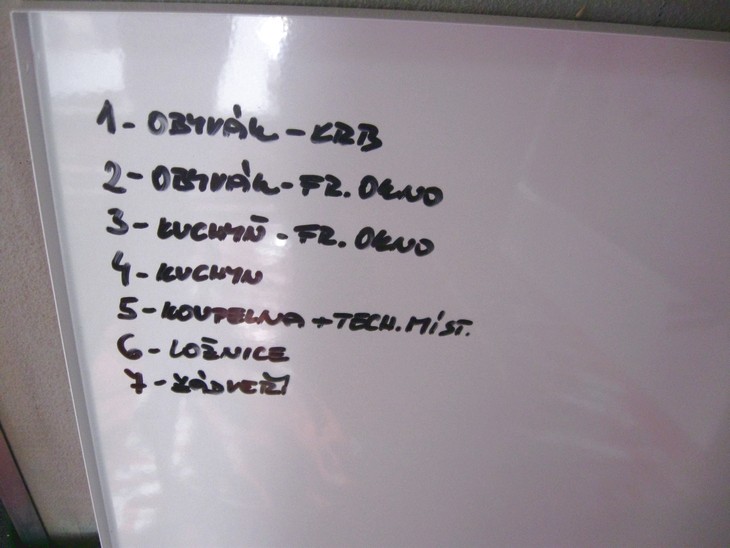 1- OBÝVÁK - KRB
2- OBÝVÁK - FR. OKNO
3- KUCHYŇ - FR. OKNO
4- KUCHYN
5- KOUPELNA + TECH. MÍST.
6- LOŽNICE
7- ZÁDVEŘÍ